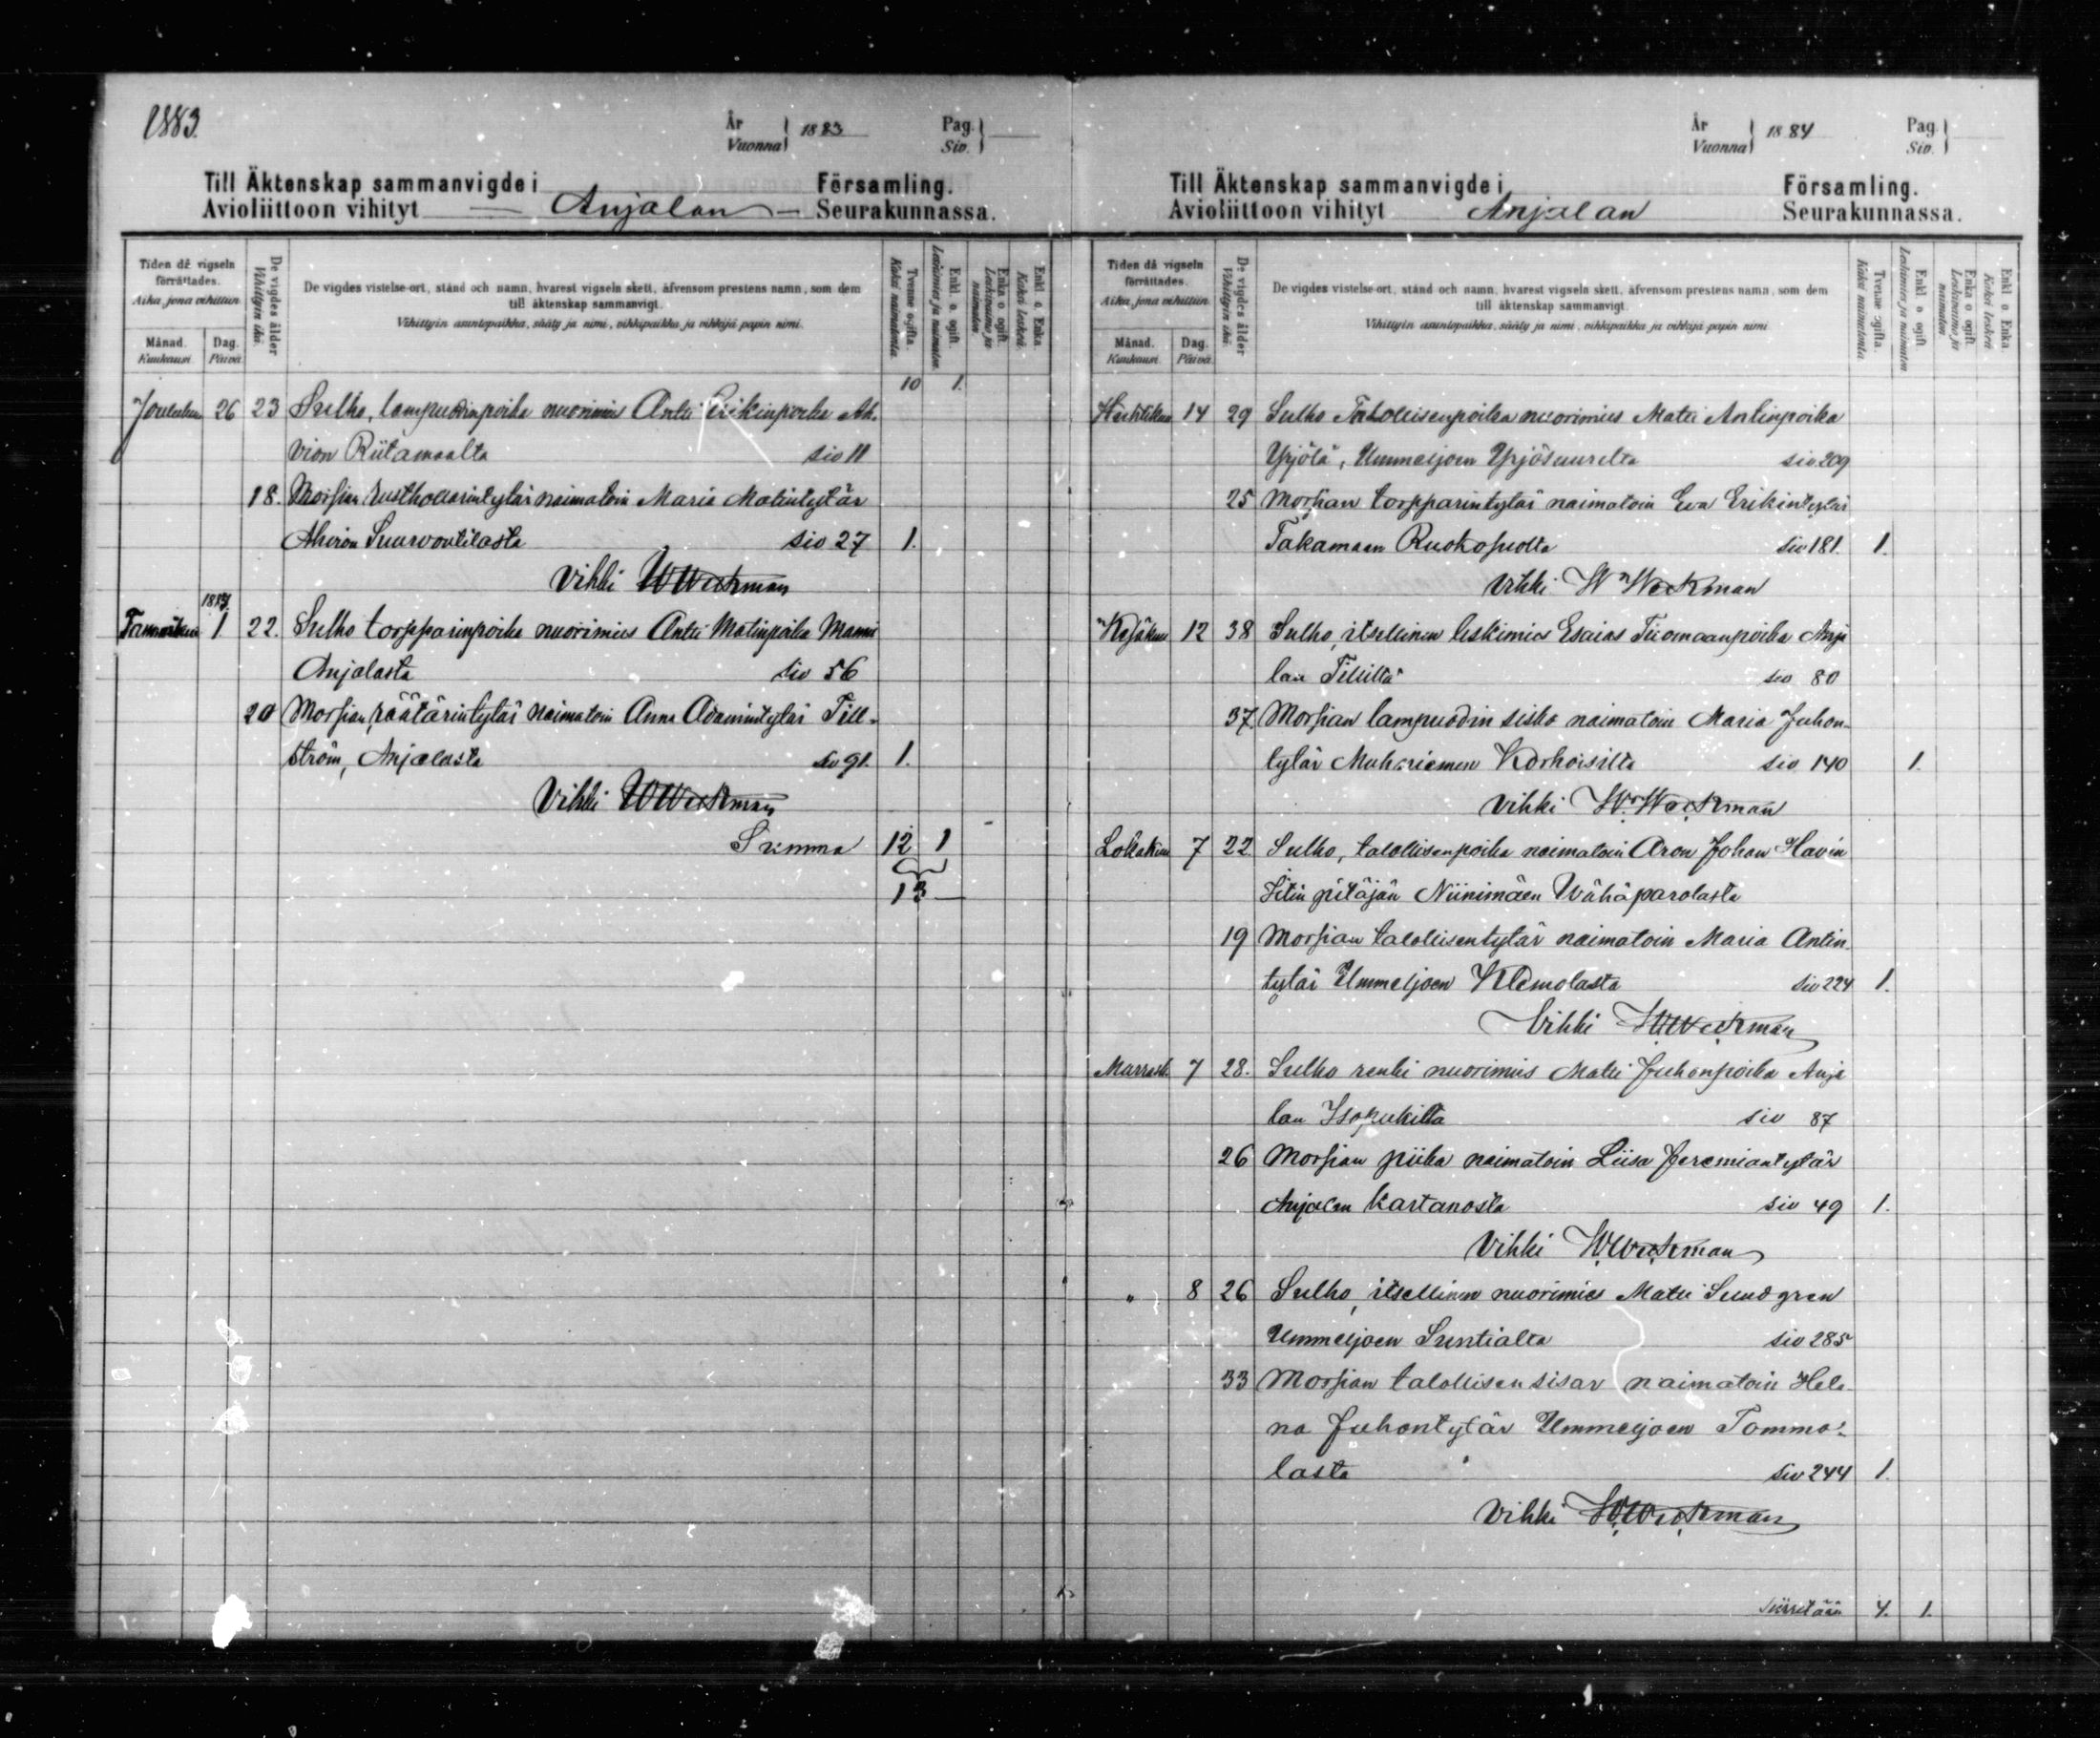 1883.
År
Vuonna } 1883
Pag.
Siv. }
Till Äktenskap sammanvigde i Församling.
Avioliittoon vihityt Anjalan Seurakunnassa.
Tiden då vigseln förrättades.
Aika, jona vihittiin.
Månad.
Kuukausi.
Dag.
Päivä.
De vigdes ålder
Vihittyin ikä.
De vigdes vistelse-ort, stånd och namn, hvarest vigseln skett, äfvensom prestens namn, som dem
till äktenskap sammanvigt.
Vihittyin asuntopaikka, sääty ja nimi, vihkipaikka ja vihkijä papin nimi.
Tvenne ogifta.
Kaksi naimatonta.
Enkl. o. ogift.
Leskimies ja naimaton.
Enka o. ogift.
Leskivaimo ja naimaton.
Enkl. o. Enka
Kaksi leskeä.
10 1.
Jouluku 26 23 Sulho, lampuodinpoika nuorimies Antti Erikinpoika Ah-
vion Riitamaalta siv 11
18. Morsian rusthollarintytär naimatoin Maria Matintytär
Ahvion Suurvoutilasta siv 27 1.
Vihki W Weckman
1884.
Tammikuu 1 22. Sulho torpparinpoika nuorimies Antti Matinpoika
Anjalasta siv 56
20 Morsian, räätärintytär naimatoin Anna Adamintytär Till-
ström, Anjalasta siv 91. 1.
Vihki W Weckman
Summa 12 1
13
År
Vuonna } 1884
Pag.
Siv. }
Till Äktenskap sammanvigde i Församling.
Avioliittoon vihityt Anjalan Seurakunnassa.
Tiden då vigseln förrättades.
Aika, jona vihittiin.
Månad.
Kuukausi.
Dag.
Päivä.
De vigdes ålder
Vihittyin ikä.
De vigdes vistelse-ort, stånd och namn, hvarest vigseln skett, äfvensom prestens namn, som dem
till äktenskap sammanvigt.
Vihittyin asuntopaikka, sääty ja nimi, vihkipaikka ja vihkijä papin nimi.
Tvenne ogifta.
Kaksi naimatonta.
Enkl. o. ogift
Leskimies ja naimaton
Enka o ogift.
Leskivaimo ja naimaton
Enkl. o Enka.
Kaksi leskeä
Huhtikuu 14 29 Sulho Talollisenpoika nuorimies Matti Antinpoika
Yrjölä, Ummeljoen Yrjösuurelta siv 209
25 Morsian torpparintytär naimatoin Eva Erikintytär
Takamaan Ruokosuolta siv 181. 1.
Vihki W Weckman
Kesäkuu 12 38 Sulho, itsellinen leskimies Esaias Tuomaanpoika Anja
lan siv 80
37. Morsian lampuodin sisko naimatoin Maria Juhon-
tytär Muhniemen Korhoisilta siv 140 1.
Vihki W. Weckman
Lokakuu 7 22. Sulho, talollisenpoika naimatoin Aron Johan Havin
Iitin pitäjän Niinimäen Wähäparolasta
19 Morsian talollisentytär naimatoin Maria Antin-
tytär Ummeljoen Klemolasta siv 224 1.
Vihki W Weckman
Marrask. 7 28. Sulho renki nuorimies Matti Juhonpoika Anja
lan Isopukilta siv 87
26 Morsian piika naimatoin Liisa Jeremiantytär
Anjalan kartanosta siv 49 1.
Vihki W Weckman
" 8 26 Sulho, itsellinen nuorimies Matti Sundgren
Ummeljoen Suntialta siv 285
33 Morsian talollisen sisar naimatoin Hele-
na Juhontytär Ummeljoen Tommo-
lasta siv 244 1.
Vihki W Weckman
Siirretään 4. 1.